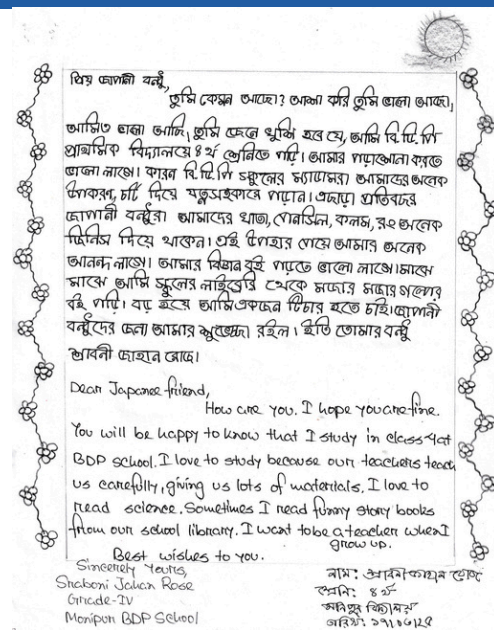 প্রিয় জাপানী বন্ধু,
তুমি কেমন আছো? আশা করি তুমি ভালো আছো,
আমিও ভালো আছি, তুমি জেনে খুশি হবে যে, আমি বি.ডি.পি
প্রাথমিক বিদ্যালয়ে ৪র্থ শ্রেনিতে পড়ি। আমার পড়াশোনা করতে
ভালো লাগে। কারন বি.ডি.পি স্কুলের ম্যাডামরা আমাদের অনেক
উপকরন, চার্ট দিয়ে যত্নসহকারে পড়ান। এছাড়া প্রতিবছর
জাপানী বন্ধুরা আমাদের খাতা, পেনসিল, কলম, রং অনেক
জিনিস দিয়ে থাকেন। এই উপহার পেয়ে আমার অনেক
আনন্দ লাগে। আমার বিজ্ঞান বই পড়তে ভালো লাগে। মাঝে
মাঝে আমি স্কুলের লাইব্রেরি থেকে মজার মজার গল্পের
বই পড়ি। বড় হয়ে আমি একজন টিচার হতে চাই। জাপানী
বন্ধুদের জন্য আমার শুভেচ্ছা রইল। ইতি তোমার বন্ধু
শ্রাবনী জাহান রোজ।
Dear Japanee friend,
How are you. I hope you are fine.
You will be happy to know that I study in class 4 at
BDP school. I love to study because our teachers teach
us carefully, giving us lots of materials. I love to
read science. Sometimes I read funny story books
from our school library. I want to be a teacher when I
grow up.
Best wishes to you.
Sincerely Yours,
Sraboni Jahan Rose
Grade-IV
Monipur BDP School
নাম: শ্রাবনী জাহান রোজ
শ্রেনি: ৪র্থ
মনিপুর বিদ্যালয়
তারিখ: